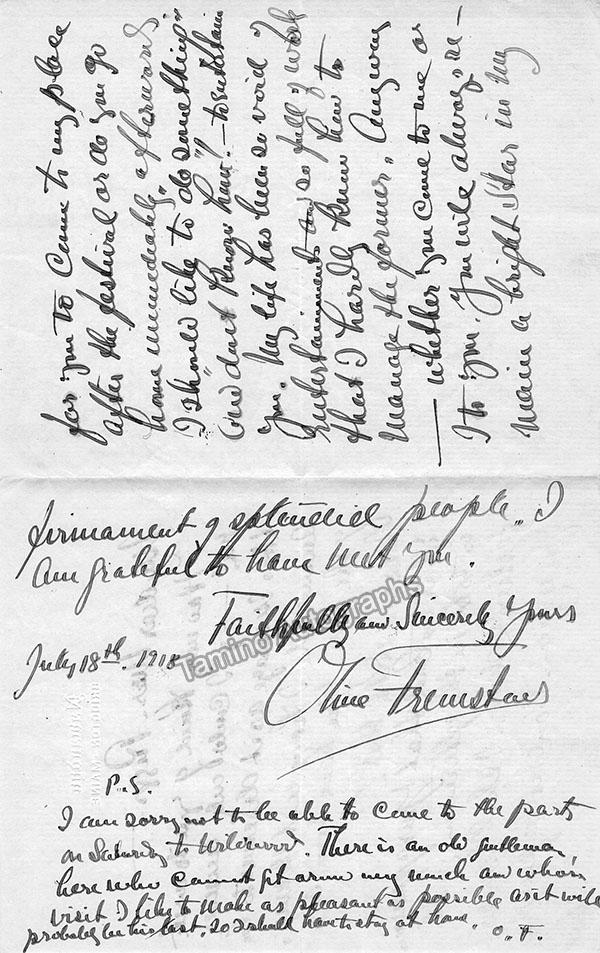 for you to come to my place
after the festival or do you go
home immediately afterward
I should like to do "something"
and don't know "how" – to entertain
you. My life has been so void of
Entertainments and so full of work
that I hardly know how to
manage the former. Anyway
— whether you come to me or
I to you. You will always re-
main a bright star in my
firmament of splendid people. I
am grateful to have met you.
Faithfully and Sincerely Yours
July 18th. 191
Olive Fremstad
Tamino Autographs
P.S.
I am sorry not to be able to come to the party
on Saturday to Wildwood. There is an old gentleman
here who cannot get around very much and who's
visit I like to make as pleasant as possible as it will
probably be his last. So I shall have to stay at home. O. F.